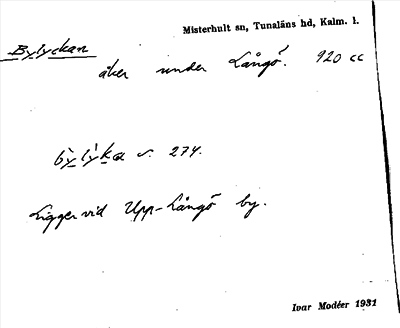 Misterhult sn, Tunaläns hd, Kalm. l.
Bylyckan
åker under Långö. 920 cc
bỳlýka v. 274.
Ligger vid Upp-Långö by.
Ivar Modéer 1931